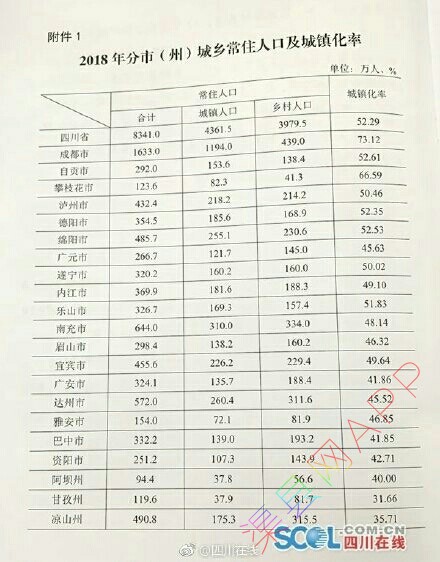 附件1
2018年分市（州）城乡常住人口及城镇化率
单位：万人、%
常住人口 城镇化率
合计 城镇人口 乡村人口
四川省 8341.0 4361.5 3979.5 52.29
成都市 1633.0 1194.0 439.0 73.12
自贡市 292.0 153.6 138.4 52.61
攀枝花市 123.6 82.3 41.3 66.59
泸州市 432.4 218.2 214.2 50.46
德阳市 354.5 185.6 168.9 52.35
绵阳市 485.7 255.1 230.6 52.53
广元市 266.7 121.7 145.0 45.63
遂宁市 320.2 160.2 160.0 50.02
内江市 369.9 181.6 188.3 49.10
乐山市 326.7 169.3 157.4 51.83
南充市 644.0 310.0 334.0 48.14
眉山市 298.4 138.2 160.2 46.32
宜宾市 455.6 226.2 229.4 49.64
广安市 324.1 135.7 188.4 41.86
达州市 572.0 260.4 311.6 45.52
雅安市 154.0 72.1 81.9 46.85
巴中市 332.2 139.0 193.2 41.85
资阳市 251.2 107.3 143.9 42.71
阿坝州 94.4 37.8 56.6 40.00
甘孜州 119.6 37.9 81.7 31.66
凉山州 490.8 175.3 315.5 35.71
渠县网APP
@四川在线
SCOL.COM.CN
四川在线